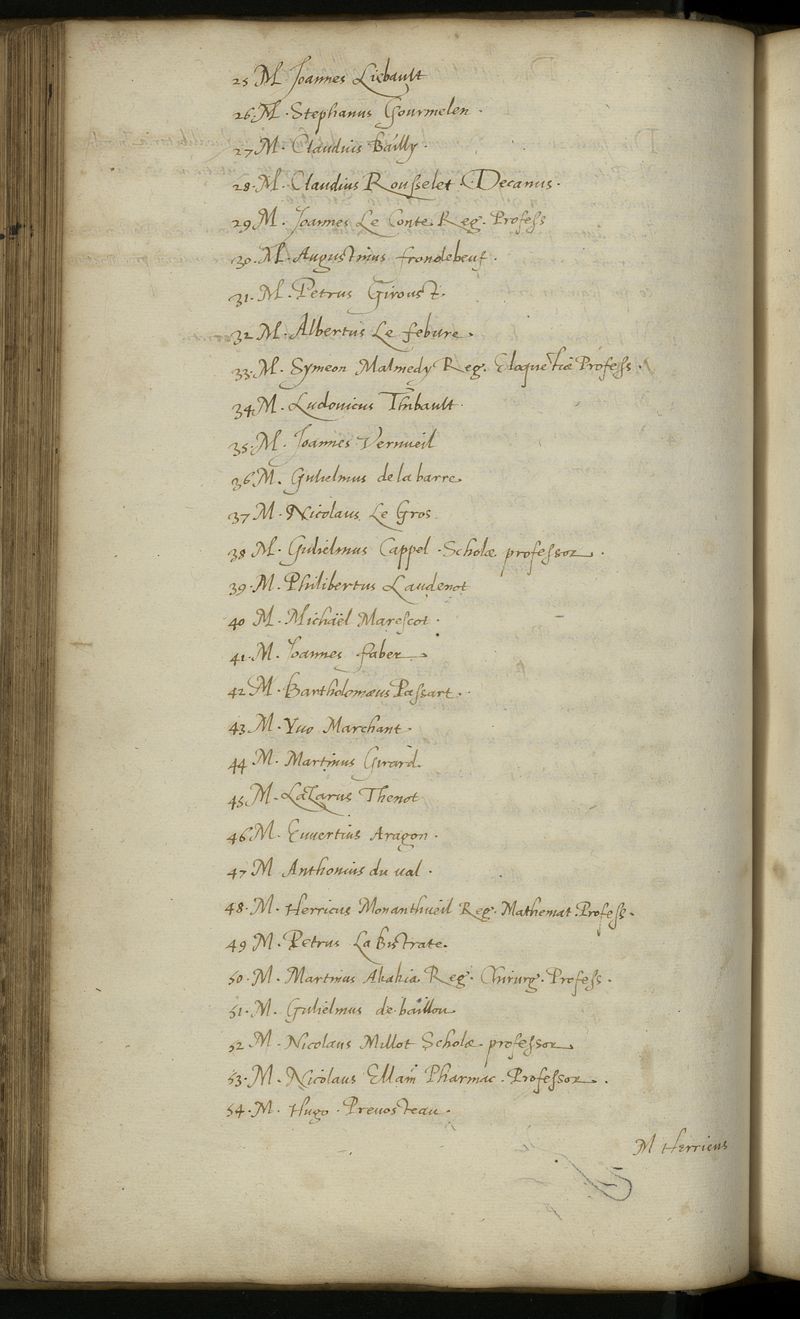 25 M. Joannes Liebault
26. M. Stephanus Gourmelen.
27 M. Claudius Bailly.
28. M. Claudius Rousselet. Decanus.
29 M. Joannes Le Conte. Reg. Profess
30. M. Augustinus frondebeuf.
31. M. Petrus Giroust.
32 M. Albertus Le febure.
33. M. Symeon Malmedy Reg. Eloquētiæ Profess.
34 M. Ludovicus Thibault.
35. M. Joannes Vernueil
36 M. Gulielmus de la barre.
37 M. Nicolaus Le Gros
38 M. Gulielmus Cappel. Scholæ professor.
39. M. Philibertus Laudenot
40 M. Michaël Marescot.
41. M. Joannes faber.
42 M. Bartholomæus Passart.
43 M. Yuo Marchant.
44 M. Martinus Girard.
45 M. Lazarus Thenot
46 M. Euuertius Aragon.
47 M Anthonius du ual.
48. M. Herricus Monanthueil Reg. Mathemat. Profess.
49 M. Petrus La bistrate.
50. M. Martinus Akakia Reg. Chirurg. Profess.
51. M. Gulielmus de baillou
52 M. Nicolaus Millot Scholæ professor.
53. M. Nicolaus Ellain Pharmac. Professor.
54. M. Hugo. Preuosteau.
M Herricus